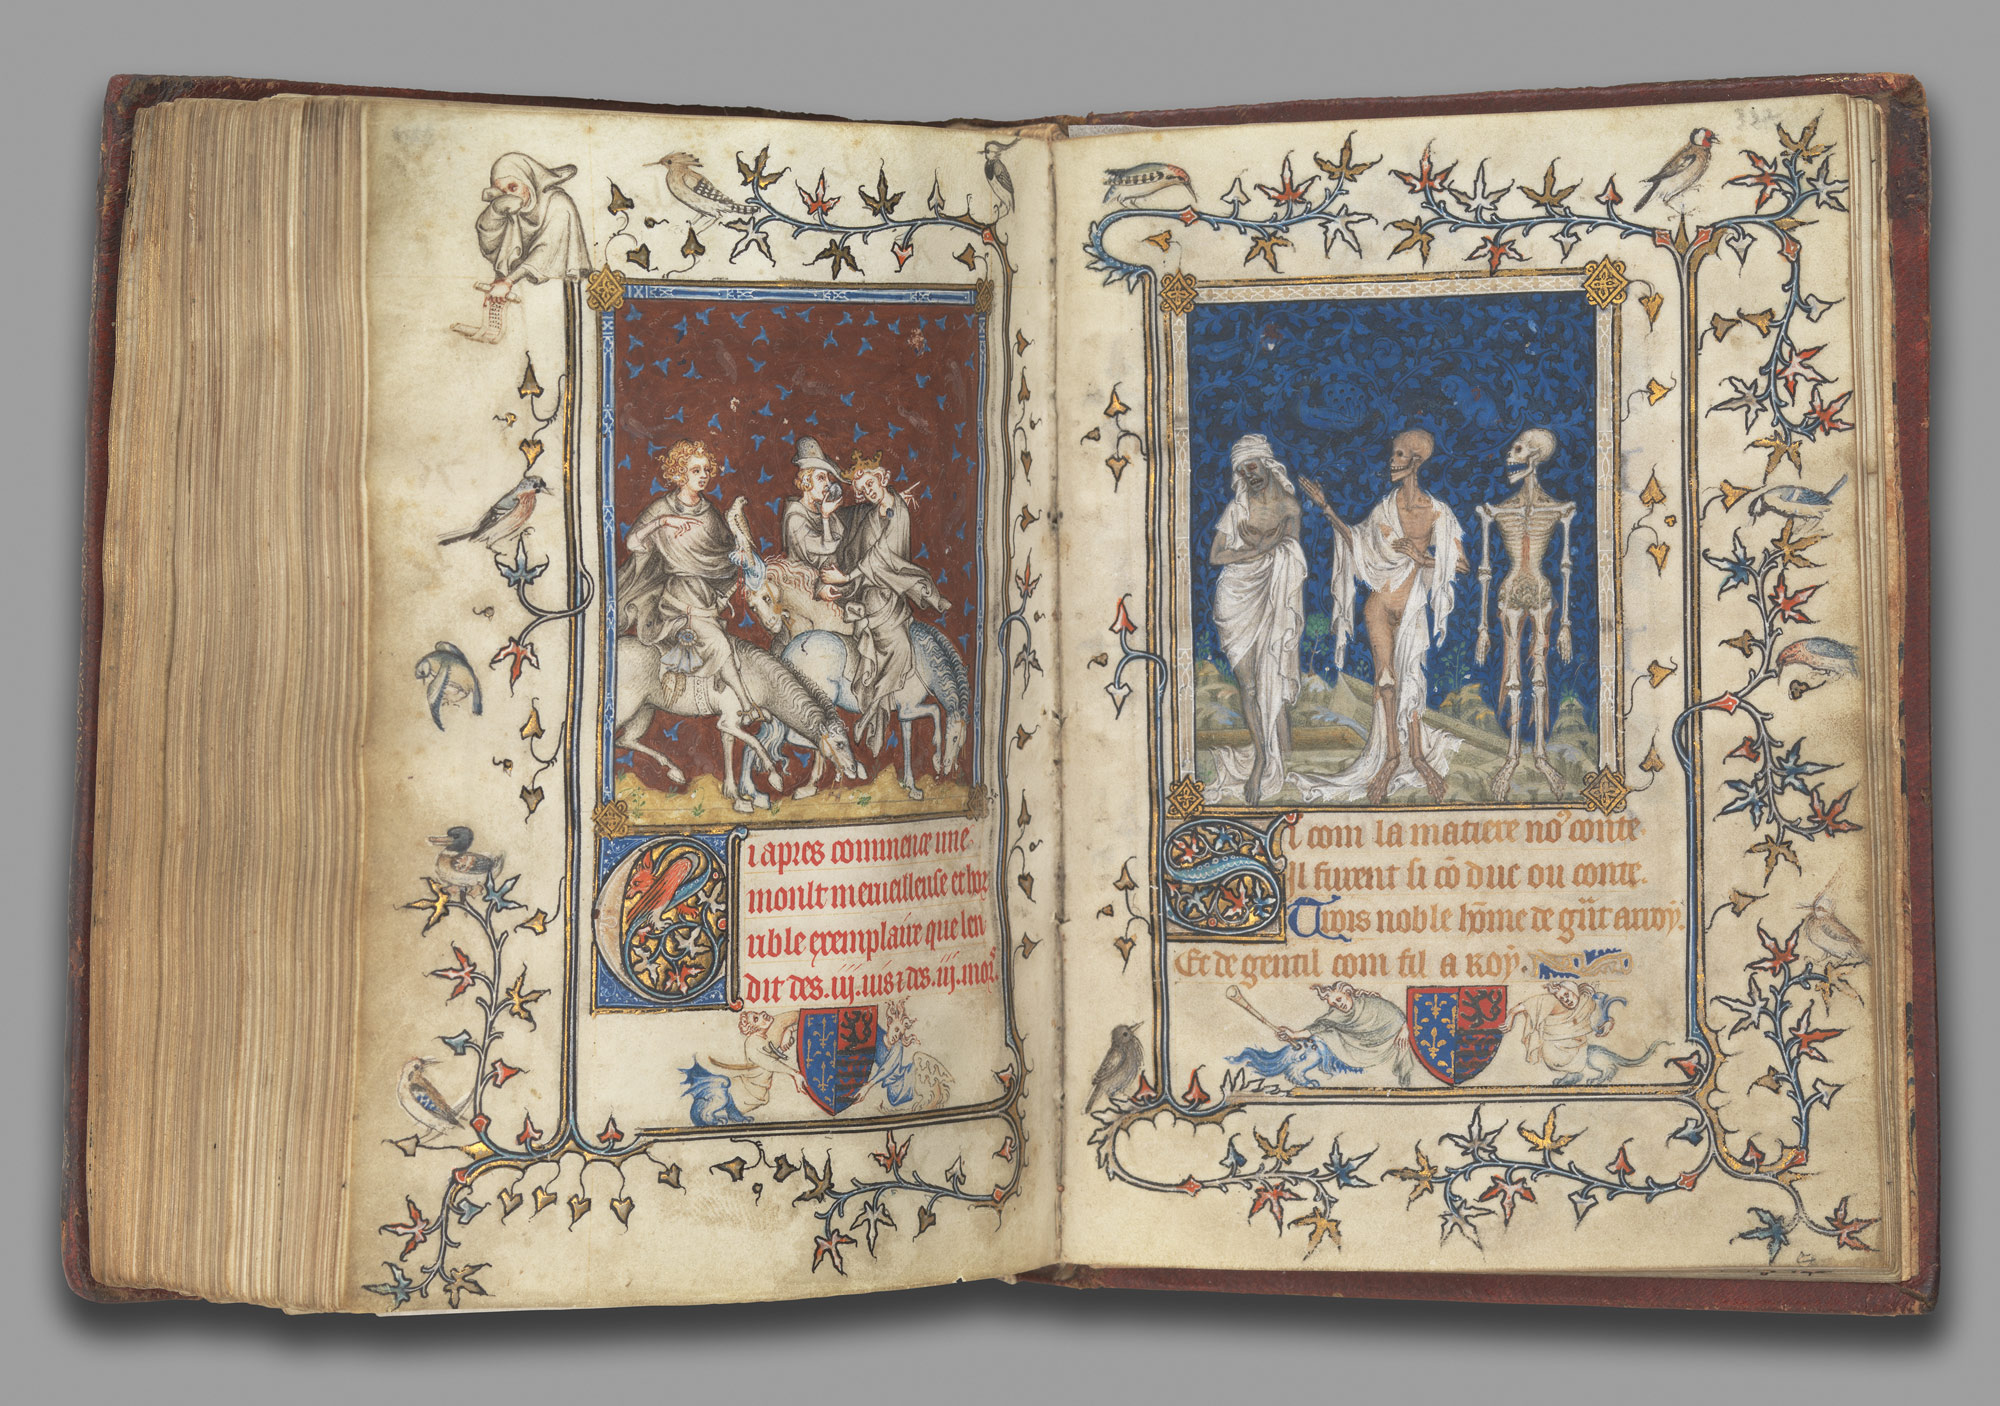 Ci apres commence une
moult merueilleuse et hor
rible exemplaire que len
dit des .iij. uis & des .iij. mors.
Si com la matiere no9 conte
Il furent si cō duc ou conte.
Trois noble hōme de gñt arroy.
Et de gentil com fil a roy.